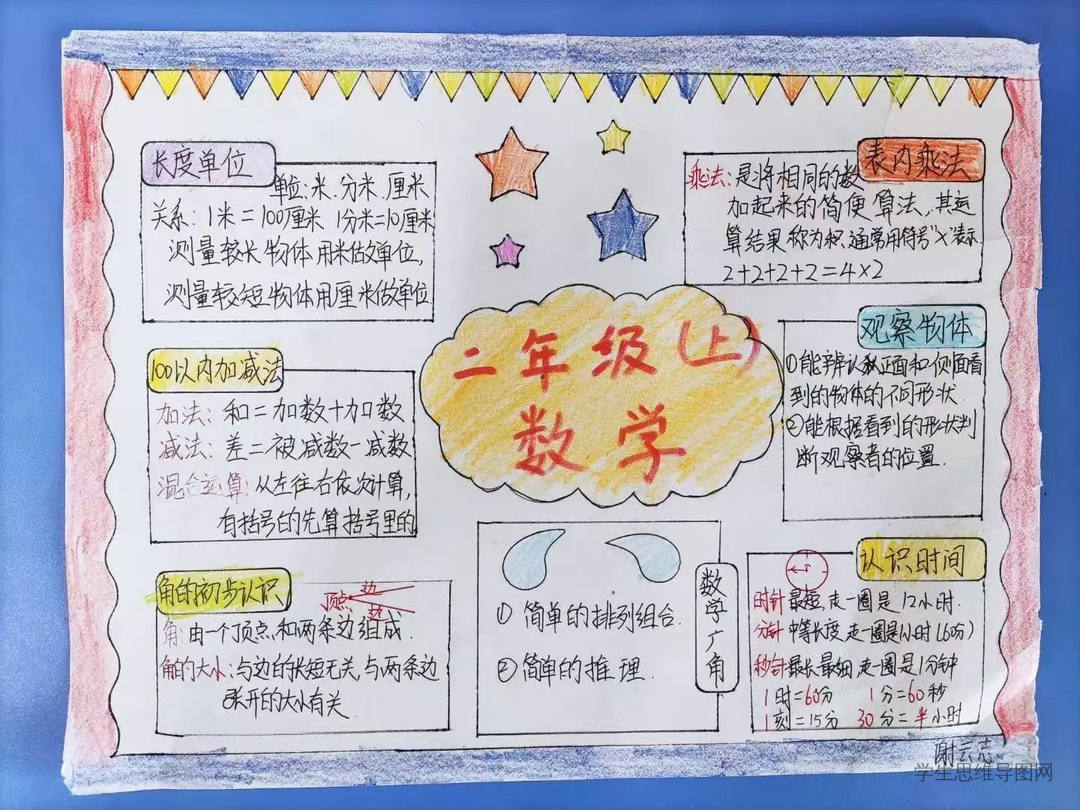 二年级(上)
数学
长度单位
单位:米.分米.厘米
关系:1米=100厘米 1分米=10厘米
测量较长物体用米做单位,
测量较短物体用厘米做单位
100以内加减法
加法:和=加数+加数
减法:差=被减数-减数
混合运算:从左往右依次计算,
有括号的先算括号里的
角的初步认识
顶点 边
边
角:由一个顶点和两条边组成.
角的大小:与边的长短无关,与两条边
张开的大小有关.
表内乘法
乘法:是将相同的数
加起来的简便算法,其运
算结果称为积,通常用符号"×"表示
2+2+2+2=4×2
观察物体
①能辨认从正面和侧面看
到的物体的不同形状.
②能根据看到的形状判
断观察者的位置.
数学广角
① 简单的排列组合.
② 简单的推理.
认识时间
时针最短,走一圈是12小时.
分针中等长度,走一圈是1小时(60分)
秒针最长最细,走一圈是1分钟
1时=60分 1分=60秒
1刻=15分 30分=半小时
谢云志
学生思维导图网